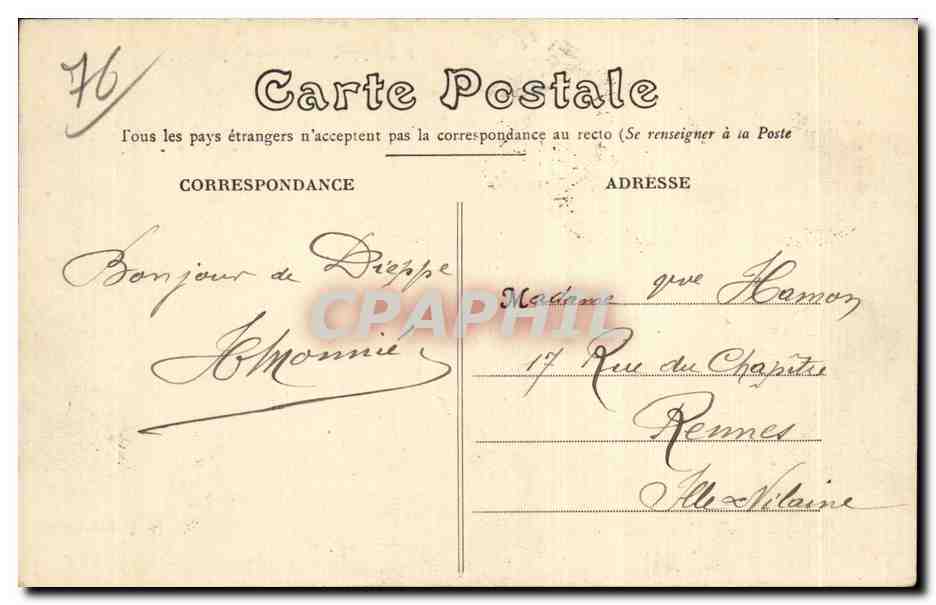 76
Carte Postale
Tous les pays étrangers n'acceptent pas la correspondance au recto (Se renseigner à la Poste
CORRESPONDANCE
ADRESSE
Bonjour de Dieppe
HMonnié
Madame vve Hamon
17 Rue du Chapitre
Rennes
Ille & Vilaine
CPAPHIL